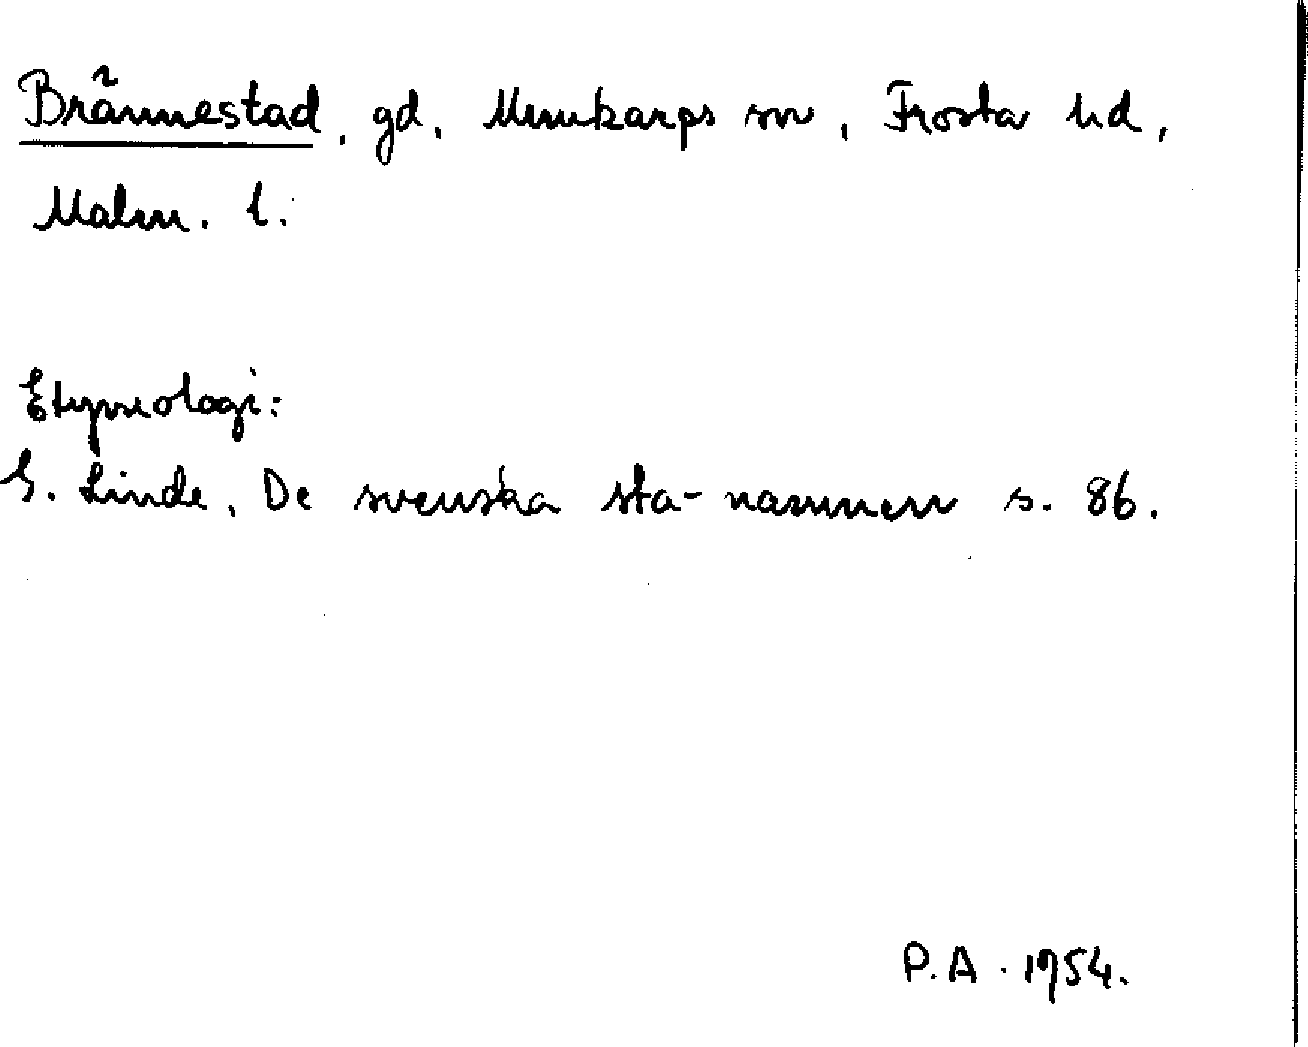 Brännestad, gd, Munkarps sn, Frosta hd,
Malm. l.
Etymologi:
G. Linde, De svenska sta-namnen s. 86.
P.A. 1954.